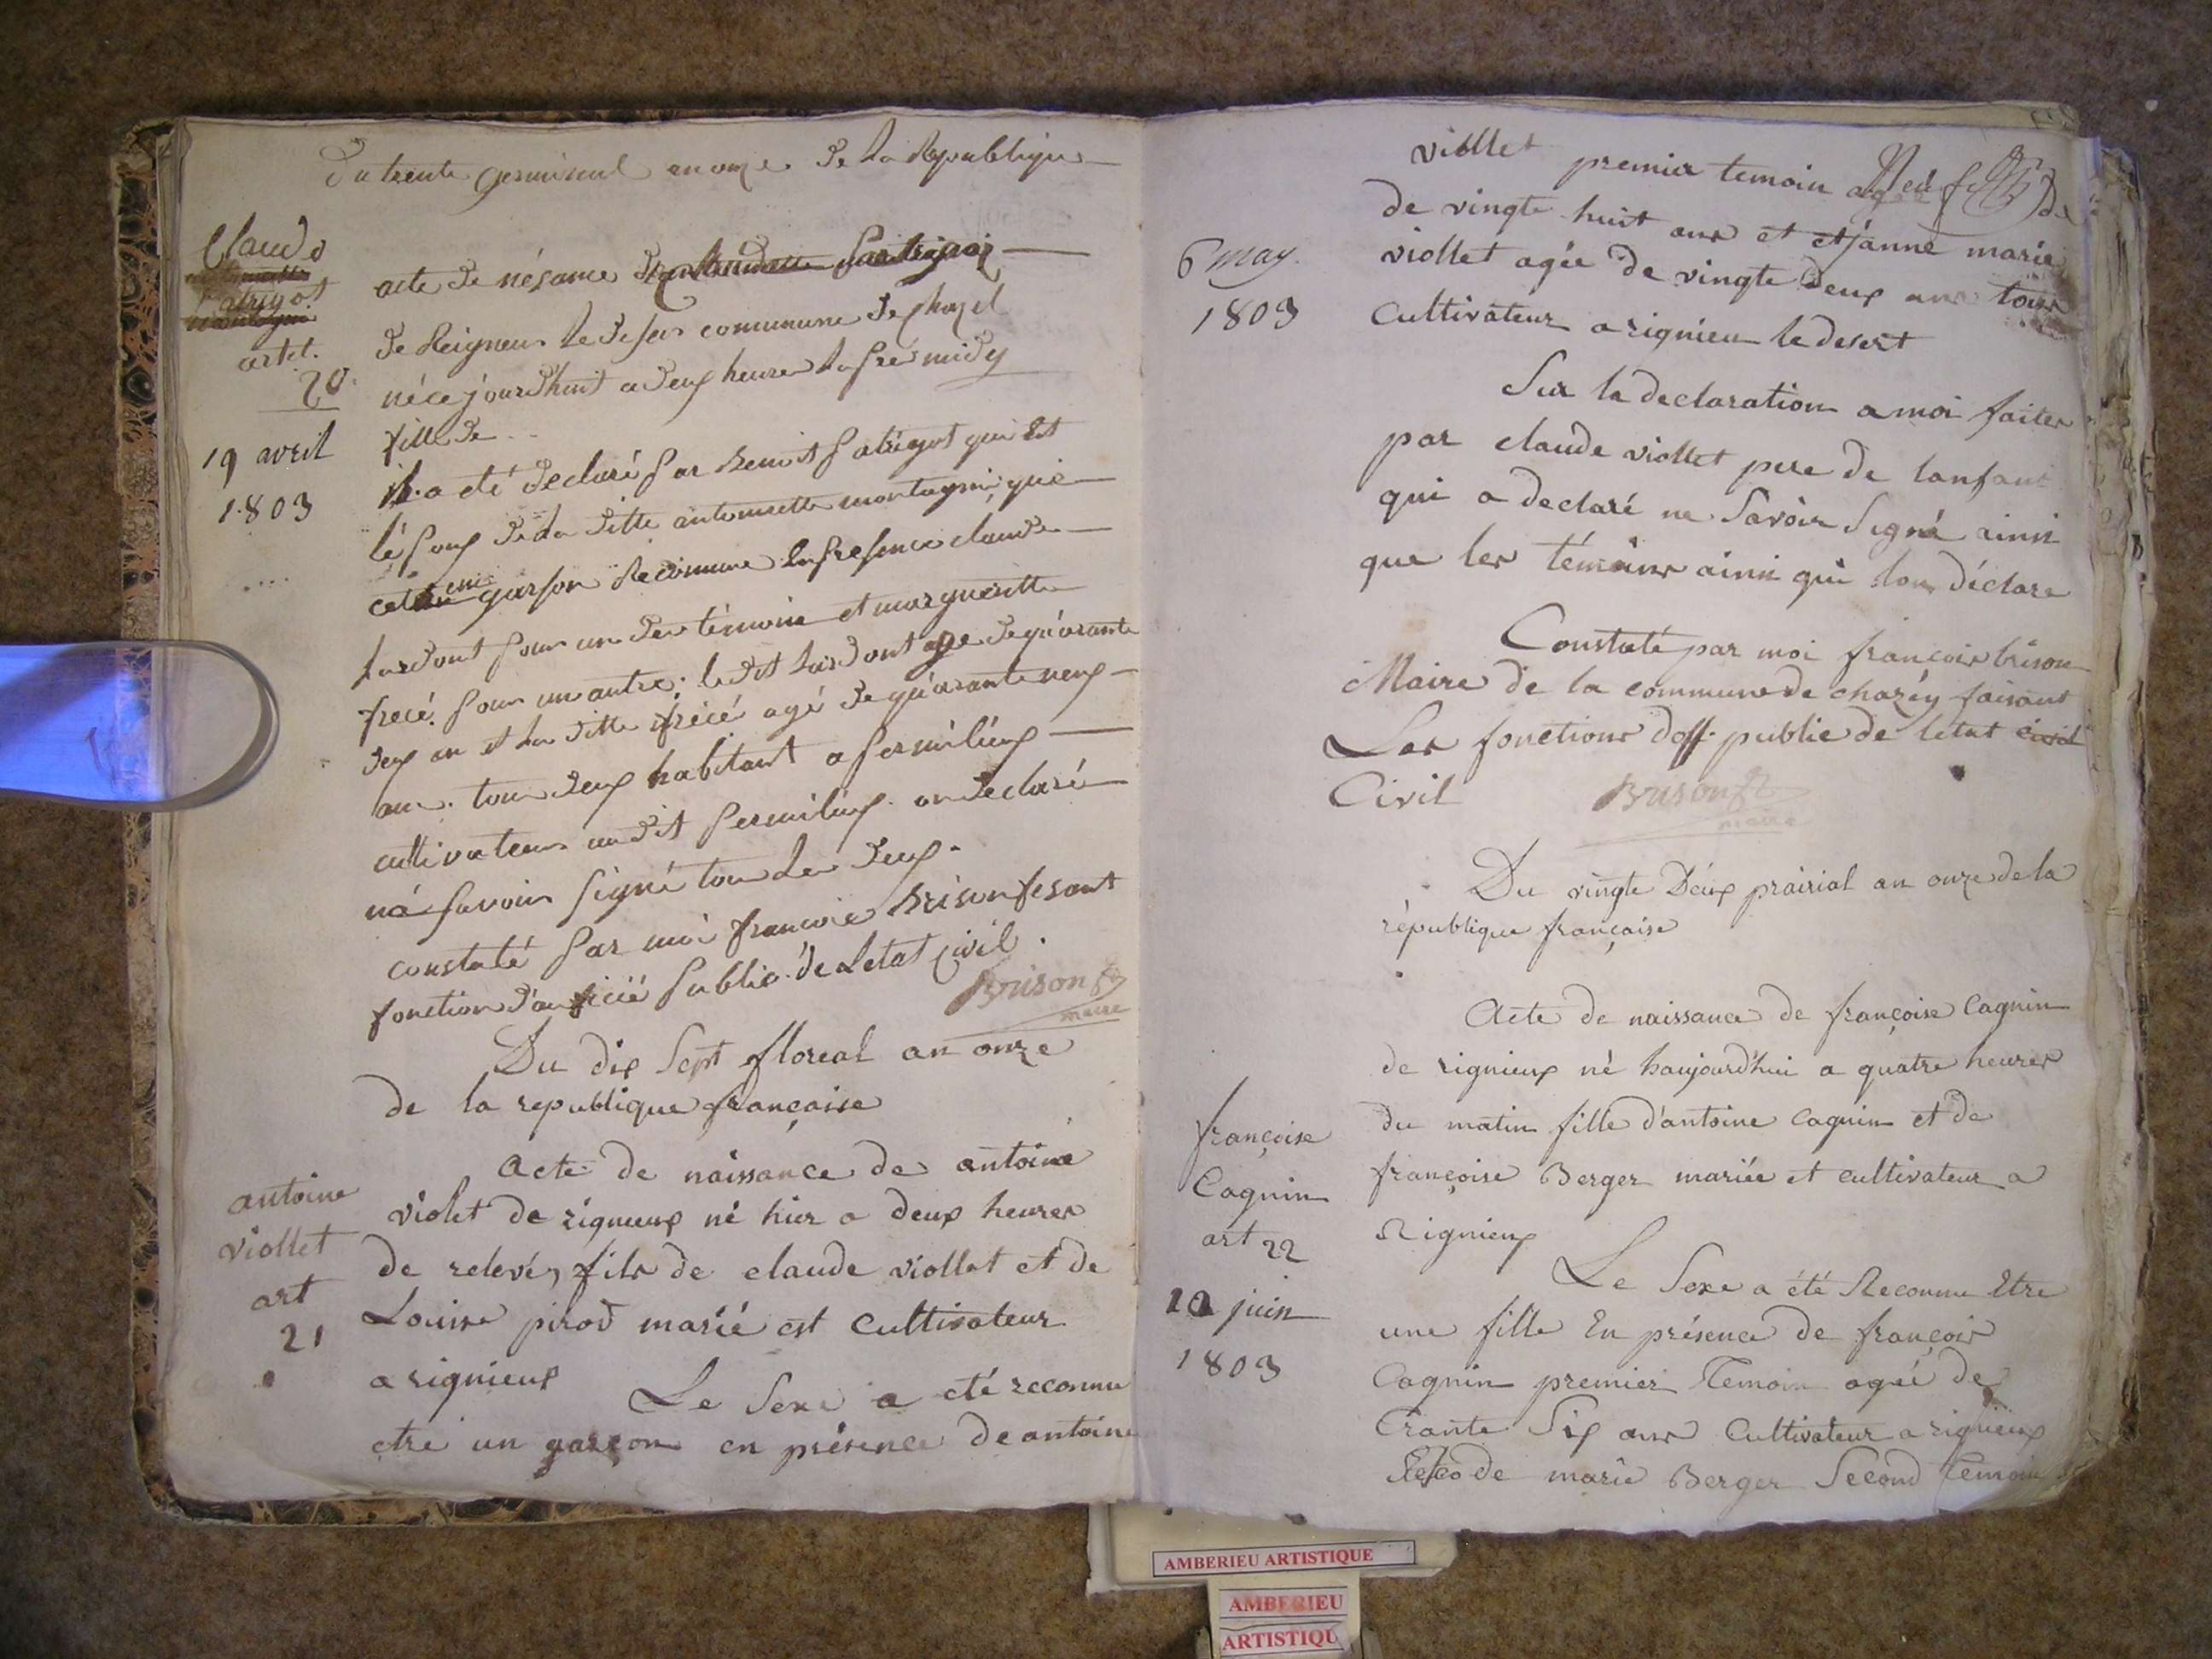 Du trente germinal an onze de la Republique
Claude
patrigot
artcl.
20
19 avril
1803
acte de nésance de
de Reigneux le deser comunune de chazel
né ce jourdhuit a deux heure laprès midy
fille de
il a été declaré par Benoit patrigot qui est
lépoux de la ditte antoinette montagni que
cet un garson Reconnue en presence claude
lardont pour un des témoin et margueritte
frecé pour un autre. le dit lardont age de quarante
deux an et la ditte frécé agé de quarante neuf
ans. tous deux habitant a permilieux
cultivateur au dit permilieux on declaré
né savoir signé tou les deux.
constaté par moi francois Brison fesant
fonction d'auficié public de Letat civil.
Brison
maire
Du dix Sept floreal an onze
de la republique française
antoine
viollet
art
21
Acte de naissance de antoine
violet de rigneux né hier a deux heures
de relevé, fils de claude viollet et de
Louise pirod marié est cultivateur
a rignieux
Le Sexe a eté reconnu
etre un garçon en présence de antoine
viollet premier temoin agé de
de vingte huit ans et et janne marie
6 may
1803
viollet agée de vingte deux ans tous
cultivateur a rignieu le desert
Sur la declaration a moi faites
par claude viollet pere de lanfant
qui a declaré ne Savoir Signé ainsi
que les témoins ainsi qui lon déclare
Constaté par moi françois brison
Maire de la commune de chazey faisant
Les fonctions d'off. public de létat civil
Civil
Brison
maire
Du vingte Deux prairial an onze de la
république française
françoise
Cagnin
art 22
10 juin
1803
Acte de naissance de françoise Cagnin
de rignieux né haujourd'hui a quatre heures
du matin fille d'antoine Cagnin et de
françoise Berger mariée et cultivateur a
Rignieux
Le Sexe a été Reconnu Etre
une fille En présence de françois
Cagnin premier Temoin ageé de
Trante Six ans Cultivateur a rignieux
de marie Berger Second Temoin
AMBERIEU ARTISTIQUE
AMBERIEU
ARTISTIQU